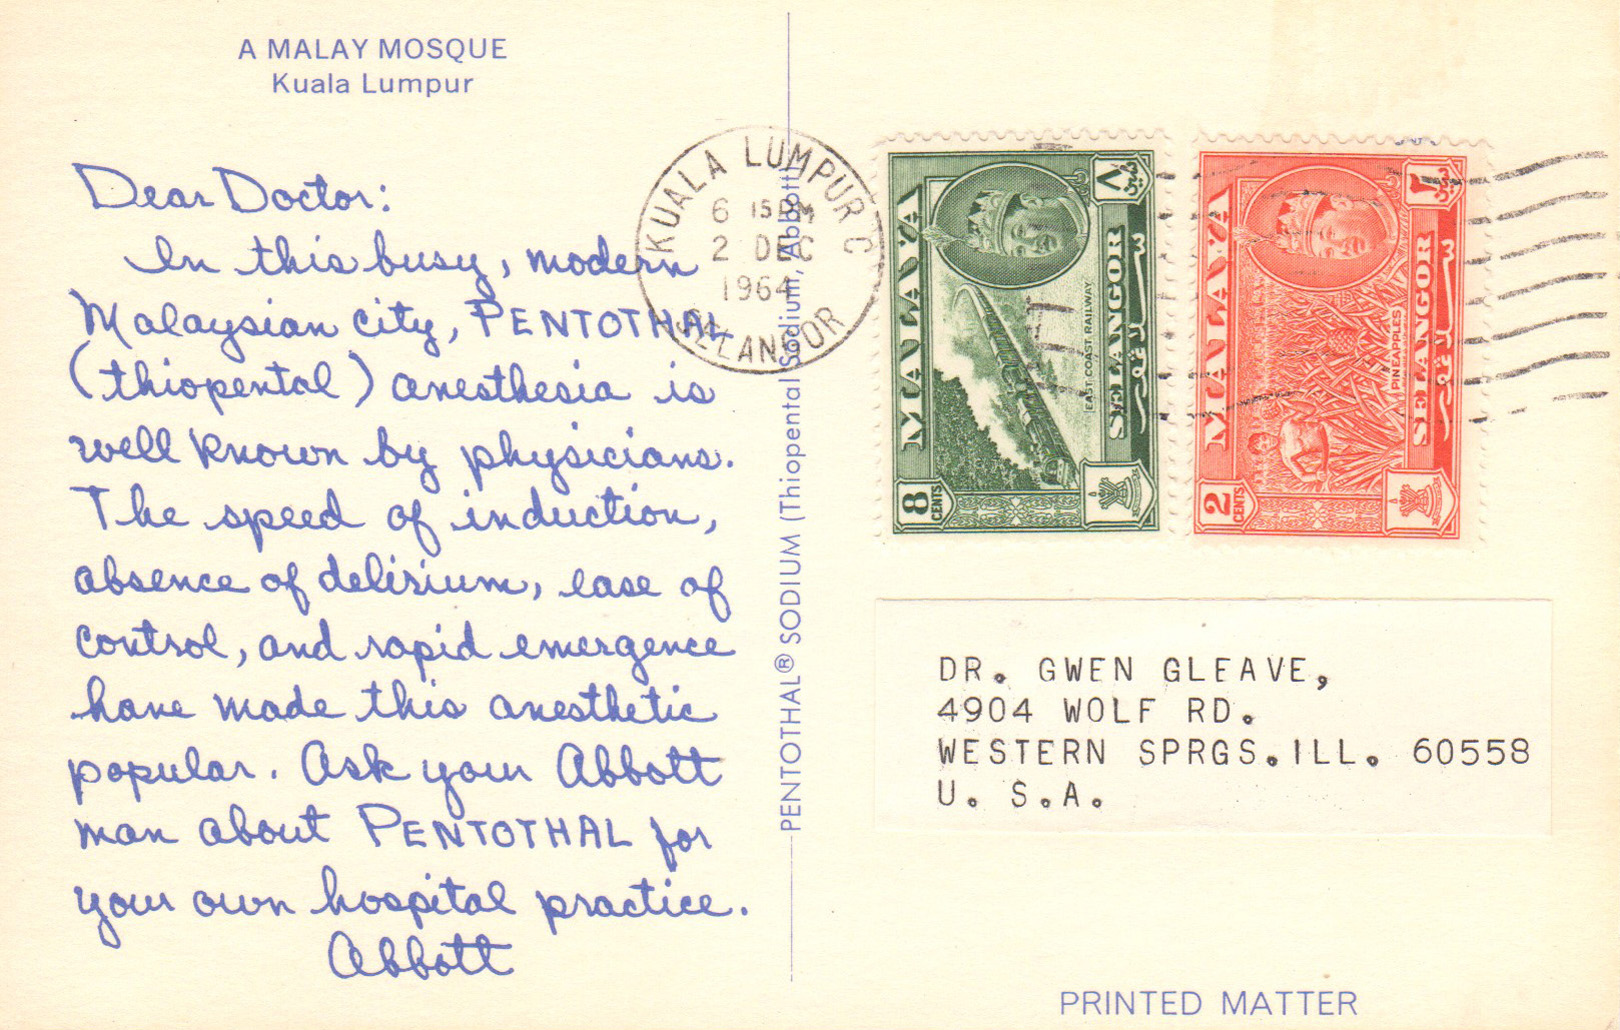 A MALAY MOSQUE
Kuala Lumpur
Dear Doctor:
In this busy, modern
Malaysian city, PENTOTHAL
(thiopental) anesthesia is
well known by physicians.
The speed of induction,
absence of delirium, ease of
control, and rapid emergence
have made this anesthetic
popular. Ask your Abbott
man about PENTOTHAL for
your own hospital practice.
Abbott
PENTOTHAL® SODIUM (Thiopental Sodium, Abbott)
KUALA LUMPUR C
6 15 PM
2 DEC
1964
SELANGOR
MALAYA
EAST COAST RAILWAY
SELANGOR
سلاڠور
٨ سين
8 CENTS
MALAYA
PINEAPPLES
SELANGOR
سلاڠور
٢ سين
2 CENTS
DR. GWEN GLEAVE,
4904 WOLF RD.
WESTERN SPRGS.ILL. 60558
U. S.A.
PRINTED MATTER